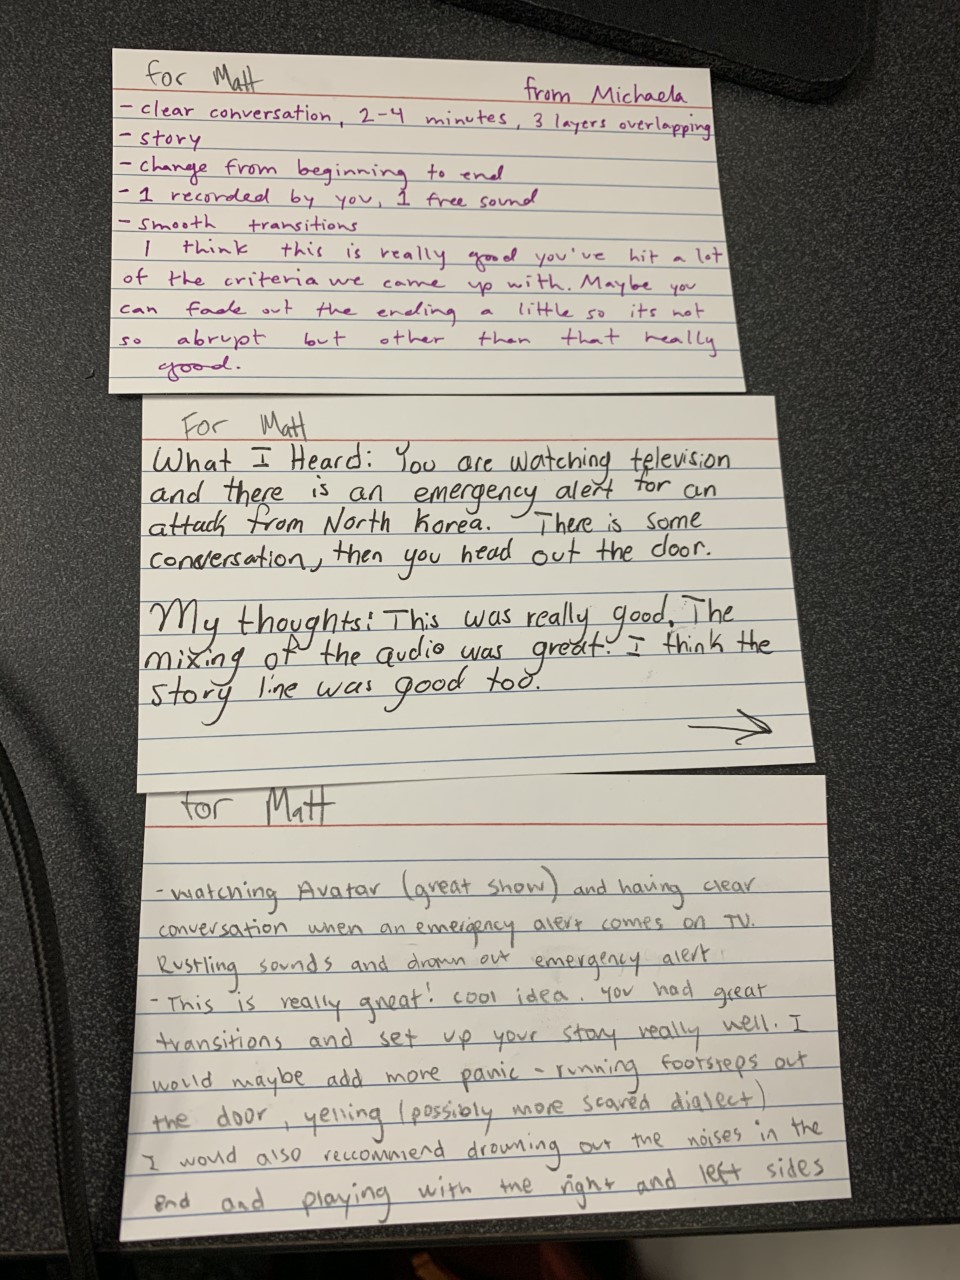 for Matt
from Michaela
- clear conversation, 2-4 minutes, 3 layers overlapping
- story
- change from beginning to end
- 1 recorded by you, 1 free sound
- smooth transitions
I think this is really good you've hit a lot
of the criteria we came up with. Maybe you
can fade out the ending a little so its not
so abrupt but other than that really
good.
For Matt
What I Heard: You are watching television
and there is an emergency alert for an
attack from North Korea. There is some
conversation, then you head out the door.
My thoughts: This was really good. The
mixing of the audio was great! I think the
story line was good too.
for Matt
- watching Avatar (great show) and having clear
conversation when an emergency alert comes on TV.
Rustling sounds and drown out emergency alert
- This is really great! cool idea. you had great
transitions and set up your story really well. I
would maybe add more panic - running footsteps out
the door, yelling (possibly more scared dialect)
I would also reccommend drowning out the noises in the
end and playing with the right and left sides